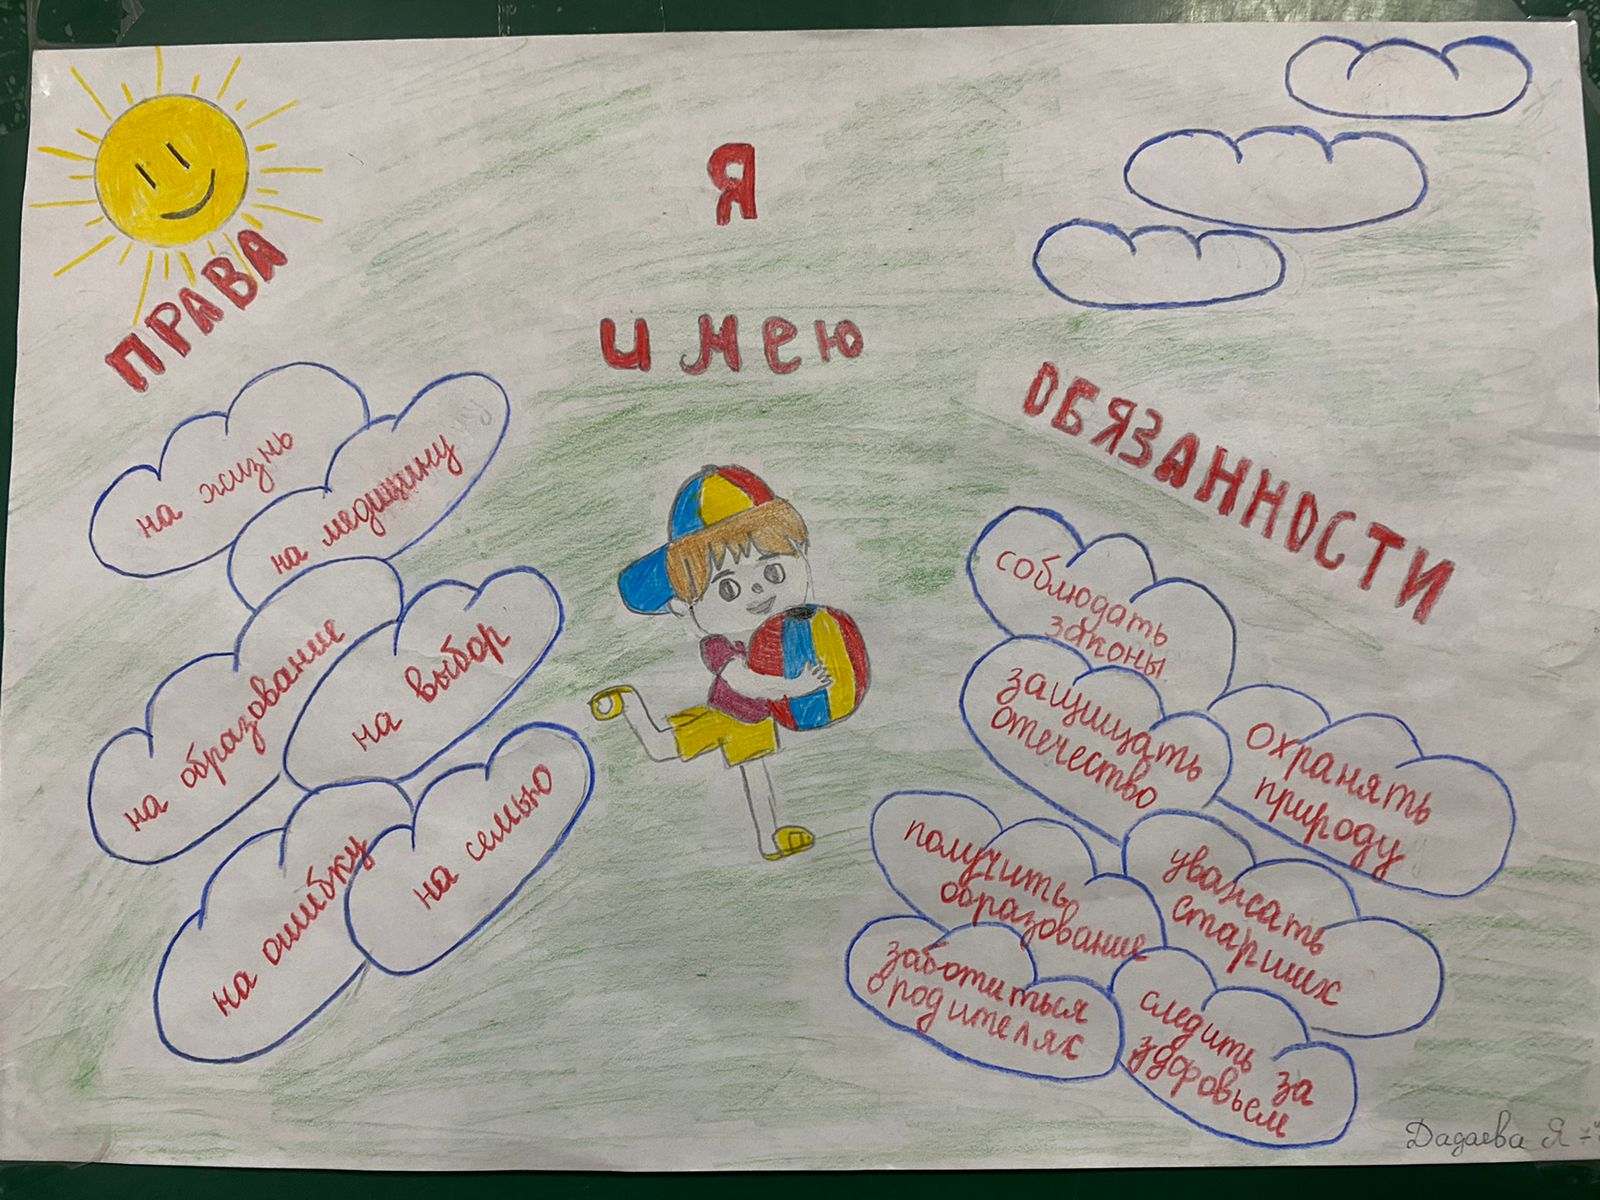 Я
имею
ПРАВА
на жизнь
на медицину
на образование
на выбор
на ошибку
на семью
ОБЯЗАННОСТИ
соблюдать
законы
защищать
отечество
охранять
природу
получить
образование
уважать
старших
заботиться
о родителях
следить за
здоровьем
Дадаева Я